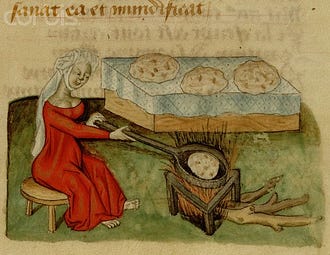 sanat ea et mundificat
corbis